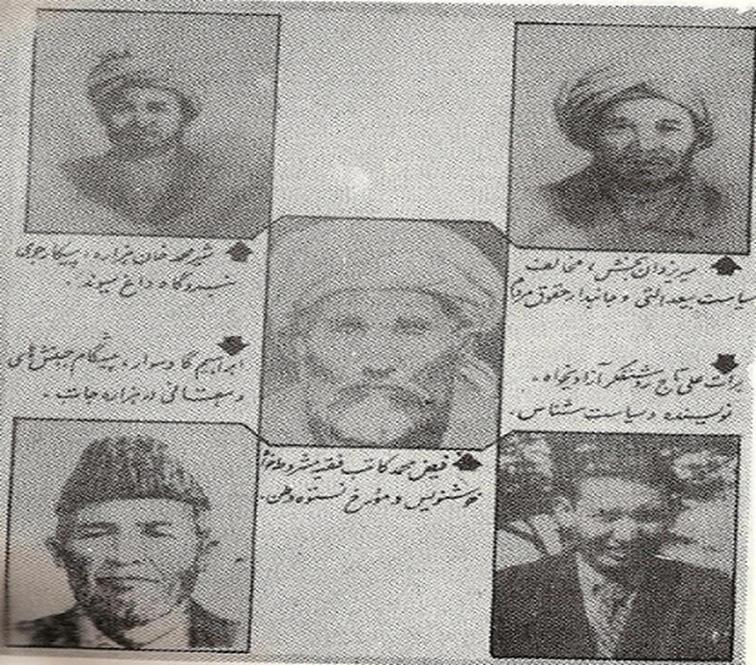 میر یزدان بخش، مخالف
سیاست بیعدالتی و جانبدار حقوق مردم
شیر محمد خان هزاره، پیکارجوی
نبردگاه داغ میوند.
برات علی تاج روشنفکر آزادیخواه،
نویسنده و سیاست شناس.
ابراهیم گاوسوار، پیشگام جنبش های
دهقانی در هزاره جات.
فیض محمد کاتب فقیه مشروطه خواه
خوشنویس و مؤرخ نستوه وطن.